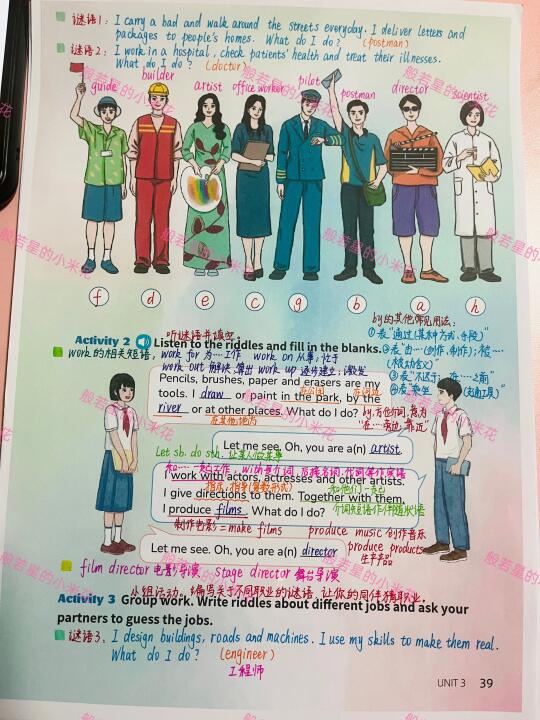 谜语1: I carry a bad and walk around the streets everyday. I deliver letters and
packages to people's homes. What do I do? (postman)
谜语2: I work in a hospital, check patients' health and treat their illnesses.
What do I do? (doctor)
guide builder artist office worker pilot postman director scientist
f d e c g b a h
by的其他常见用法:
①表"通过(某种方式、手段)"
②表"由…(创作、制作); 被…
(被动含义)"
③表"不迟于; 在……之前"
④表"乘坐 (交通工具)"
听谜语并填空.
Activity 2 Listen to the riddles and fill in the blanks.
work的相关短语, work for 为…工作 work on 从事; 忙于
work out 解决, 算出 work up 逐步建立; 激发
Pencils, brushes, paper and erasers are my
tools. I draw or paint in the park, by the
在公园 在河边
river or at other places. What do I do?
在其他地方
by, 方位介词, 意为
"在…旁边, 靠近"
Let me see. Oh, you are a(n) artist.
Let sb. do sth. 让某人做某事
和……一起工作; with是介词, 后接名词、代词等作宾语
I work with actors, actresses and other artists.
指示; 指导(复数形式) 和他们一起
I give directions to them. Together with them,
I produce films. What do I do?
介词短语作伴随状语
制作电影 = make films produce music 创作音乐
Let me see. Oh, you are a(n) director
produce products
生产产品
film director 电影导演 stage director 舞台导演
小组活动. 编写关于不同职业的谜语, 让你的同伴猜职业.
Activity 3 Group work. Write riddles about different jobs and ask your
partners to guess the jobs.
谜语3. I design buildings, roads and machines. I use my skills to make them real.
What do I do? (engineer)
工程师
UNIT 3 39
般若星的小米花